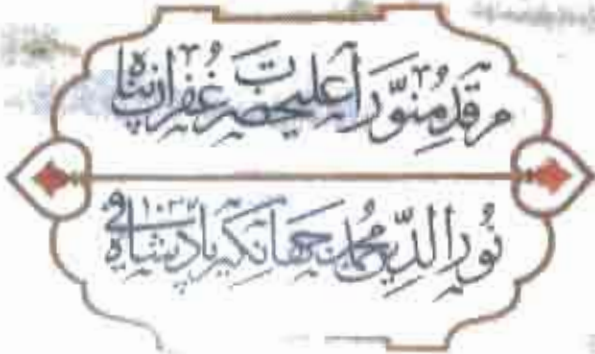 مرقد منوّر اعلیحضرت غفران پناه
نورالدّین محمّد جهانگیر پادشاه فی ۱۰۳۷